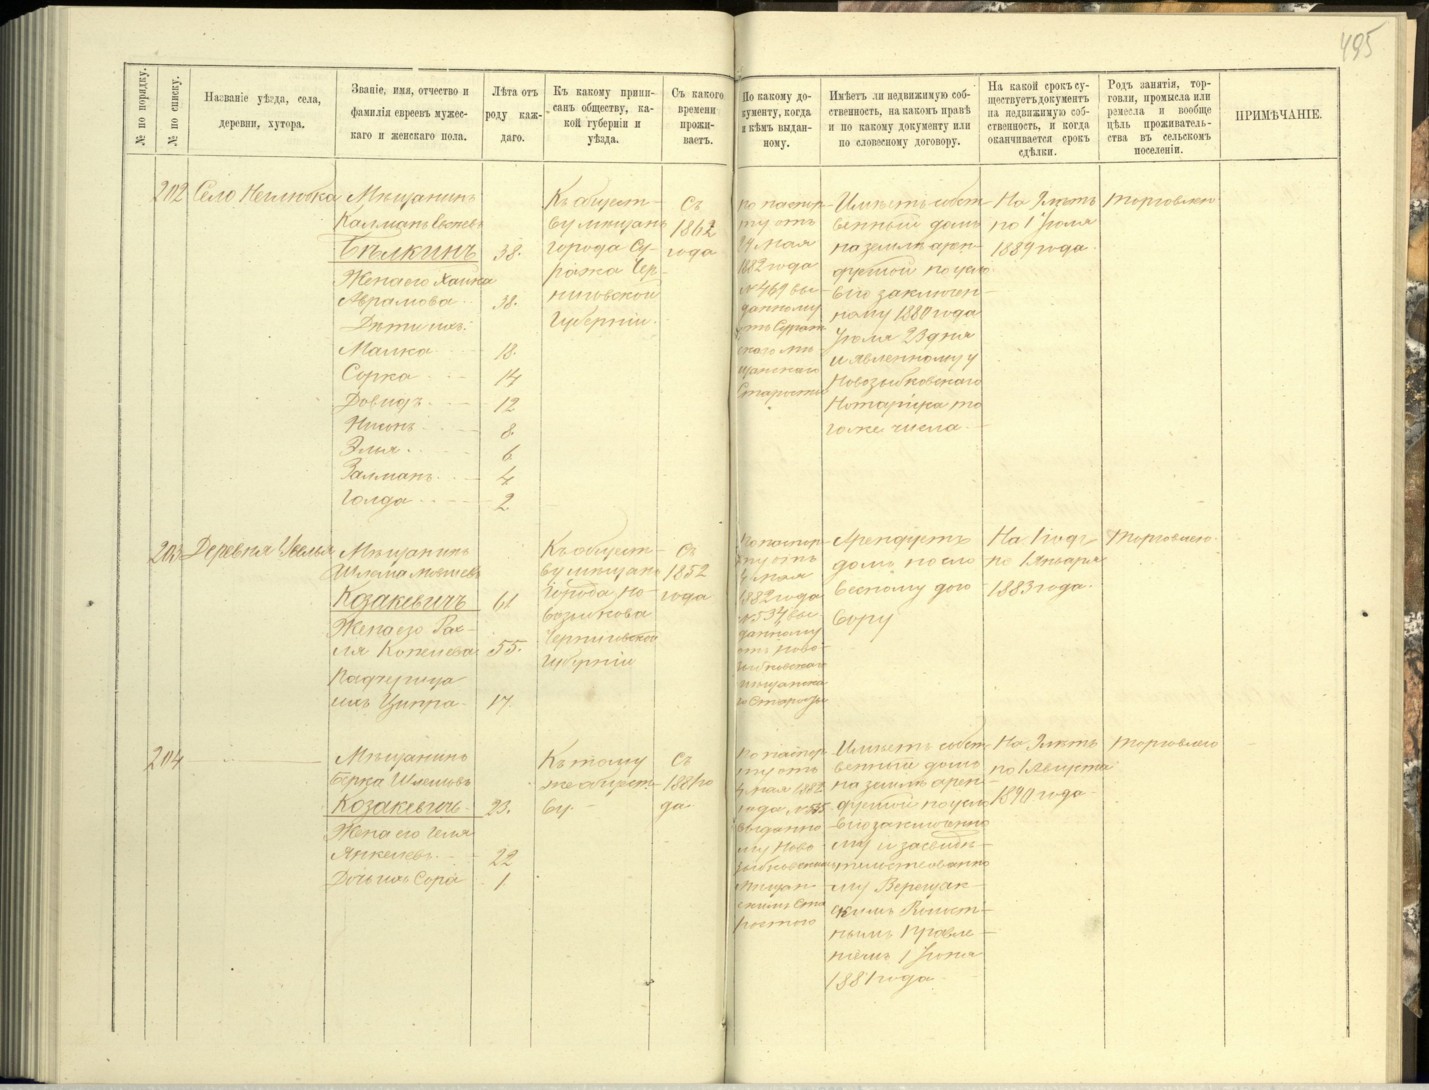 495
№ по порядку.
№ по списку.
Названіе уѣзда, села,
деревни, хутора.
Званіе, имя, отчество и
фамилія евреевъ мужес-
каго и женскаго пола.
Лѣта отъ
роду каж-
даго.
Къ какому припи-
санъ обществу, ка-
кой губерніи и
уѣзда.
Съ какого
времени
прожи-
ваетъ.
По какому до-
кументу, когда
и кѣмъ выдан-
ному.
Имѣетъ ли недвижимую соб-
ственность, на какомъ правѣ
и по какому документу или
по словесному договору.
На какой срокъ су-
ществуетъ документъ
на недвижимую соб-
ственность, и когда
оканчивается срокъ
сдѣлки.
Родъ занятія, тор-
говли, промысла или
ремесла и вообще
цѣль проживатель-
ства въ сельскомъ
поселеніи.
ПРИМѢЧАНІЕ.
202
Село Неглюбка
Мѣщанинъ
Калманъ
Бѣлкинъ 38.
Жена его Хайка
Абрамова 38.
Дѣти ихъ:
Малка 18.
Сорка 14
Довидъ 12
Нисонъ 8
Элья 6
Залманъ 4
Голда 2
Къ общест-
ву мѣщанъ
города Су-
ража Чер-
ниговской
Губерніи.
Съ
1862
года
по паспор-
ту отъ
мая
1882 года
№ 469 вы-
данному
отъ Сураж-
скаго мѣ-
щанскаго
Старосты
Имѣетъ собст-
венный домъ
на землѣ арен-
дуемой по усло-
вію заключен-
ному 1880 года
Іюля 23 дня
и явленному у
Новозыбковскаго
Нотаріуса то
гоже числа.
На 9 лѣтъ
по 1 Іюля
1889 года.
торговлею
203
Деревня Увелья
Мѣщанинъ
Шлема Мовшевъ
Козакевичъ 61
Жена его Рах-
ля 55.
Падчерица
ихъ Ципра 17.
Къ общест-
ву мѣщанъ
города Но-
возыбкова
Черниговской
Губерніи
Съ
1852
года
По паспор-
ту отъ
4 мая
1882 года
№ 534 вы-
данному
отъ Ново-
зыбковскаго
мѣщанска-
го Старосты
Арендуетъ
домъ по сло-
весному дого-
вору
На 1 годъ
по 1 Января
1883 года.
торговлею.
204
Мѣщанинъ
Берка Шлемовъ
Козакевичъ 23.
Жена его Геля
Янкелевъ 22
Дочь ихъ Сора 1
Къ тому
же общест-
ву.
Съ
1881 го
да
по паспор-
ту отъ
4 мая 1882
года № 535
выданно-
му Ново-
зыбковскимъ
Мѣщан-
скимъ Ста
ростою
Имѣетъ собст-
венный домъ
на землѣ арен-
дуемой по усло-
вію заключенно-
му и засвидѣ-
тельствованно-
му Верещак-
скимъ Волост-
нымъ Правле-
ніемъ 1 Іюня
1881 года.
На 9 лѣтъ
по 1 Августа
1890 года.
торговлею